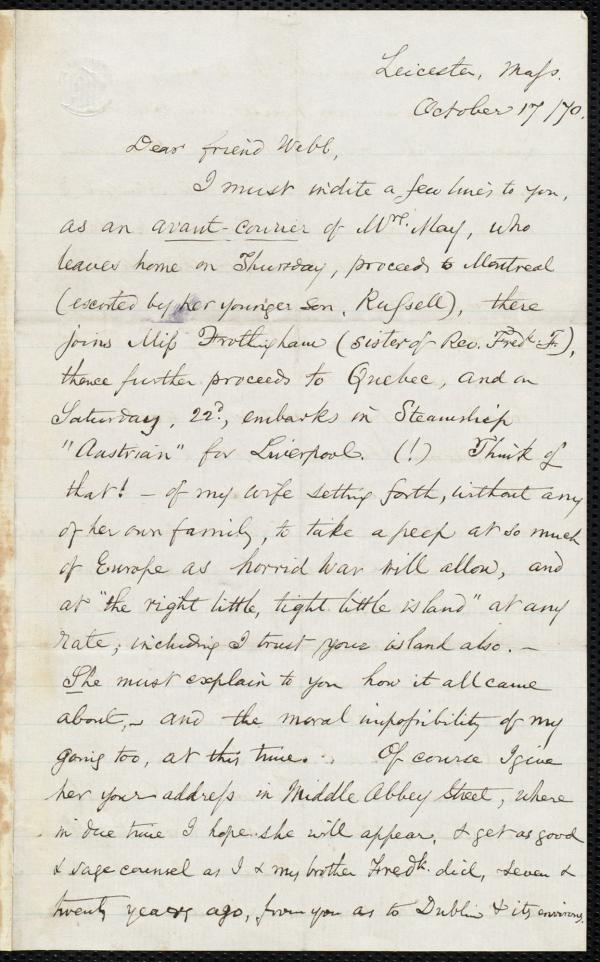 Leicester, Mass.
October 17/70.
Dear friend Webb,
I must indite a few lines to you,
as an avant-courier of Mrs. May, who
leaves home on Thursday, proceeds to Montreal
(escorted by her younger son, Russell), there
joins Miss Frothingham (sister of Rev. Fredk. F.),
thence further proceeds to Quebec, and on
Saturday, 22d, embarks in Steamship
"Austrian" for Liverpool. (!) Think of
that! - of my wife setting forth, without any
of her own family, to take a peep at so much
of Europe as horrid War will allow, and
at "the right little, tight little island" at any
rate; including I trust your island also. -
She must explain to you how it all came
about, - and the moral impossibility of my
going too, at this time. Of course I give
her your address in Middle Abbey Street, where
in due time I hope she will appear, & get as good
& sage counsel as I & my brother Fredk. did, seven &
twenty years ago, from you as to Dublin & its environs.